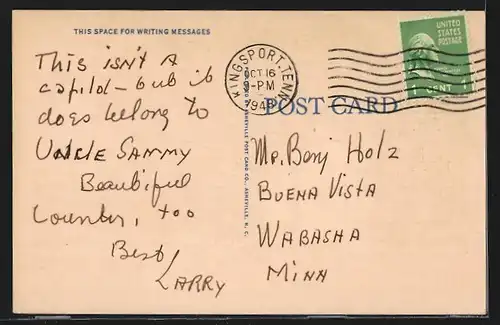 THIS SPACE FOR WRITING MESSAGES
This isn't a
capitol - but it
does belong to
Uncle Sammy
Beautiful
Country, too
Best
Larry
KINGSPORT, TENN.
OCT 16
9-PM
UNITED
STATES
POSTAGE
1 CENT 1
POST CARD
ASHEVILLE POST CARD CO., ASHEVILLE, N. C.
Mr. Benj Holz
Buena Vista
Wabasha
Minn